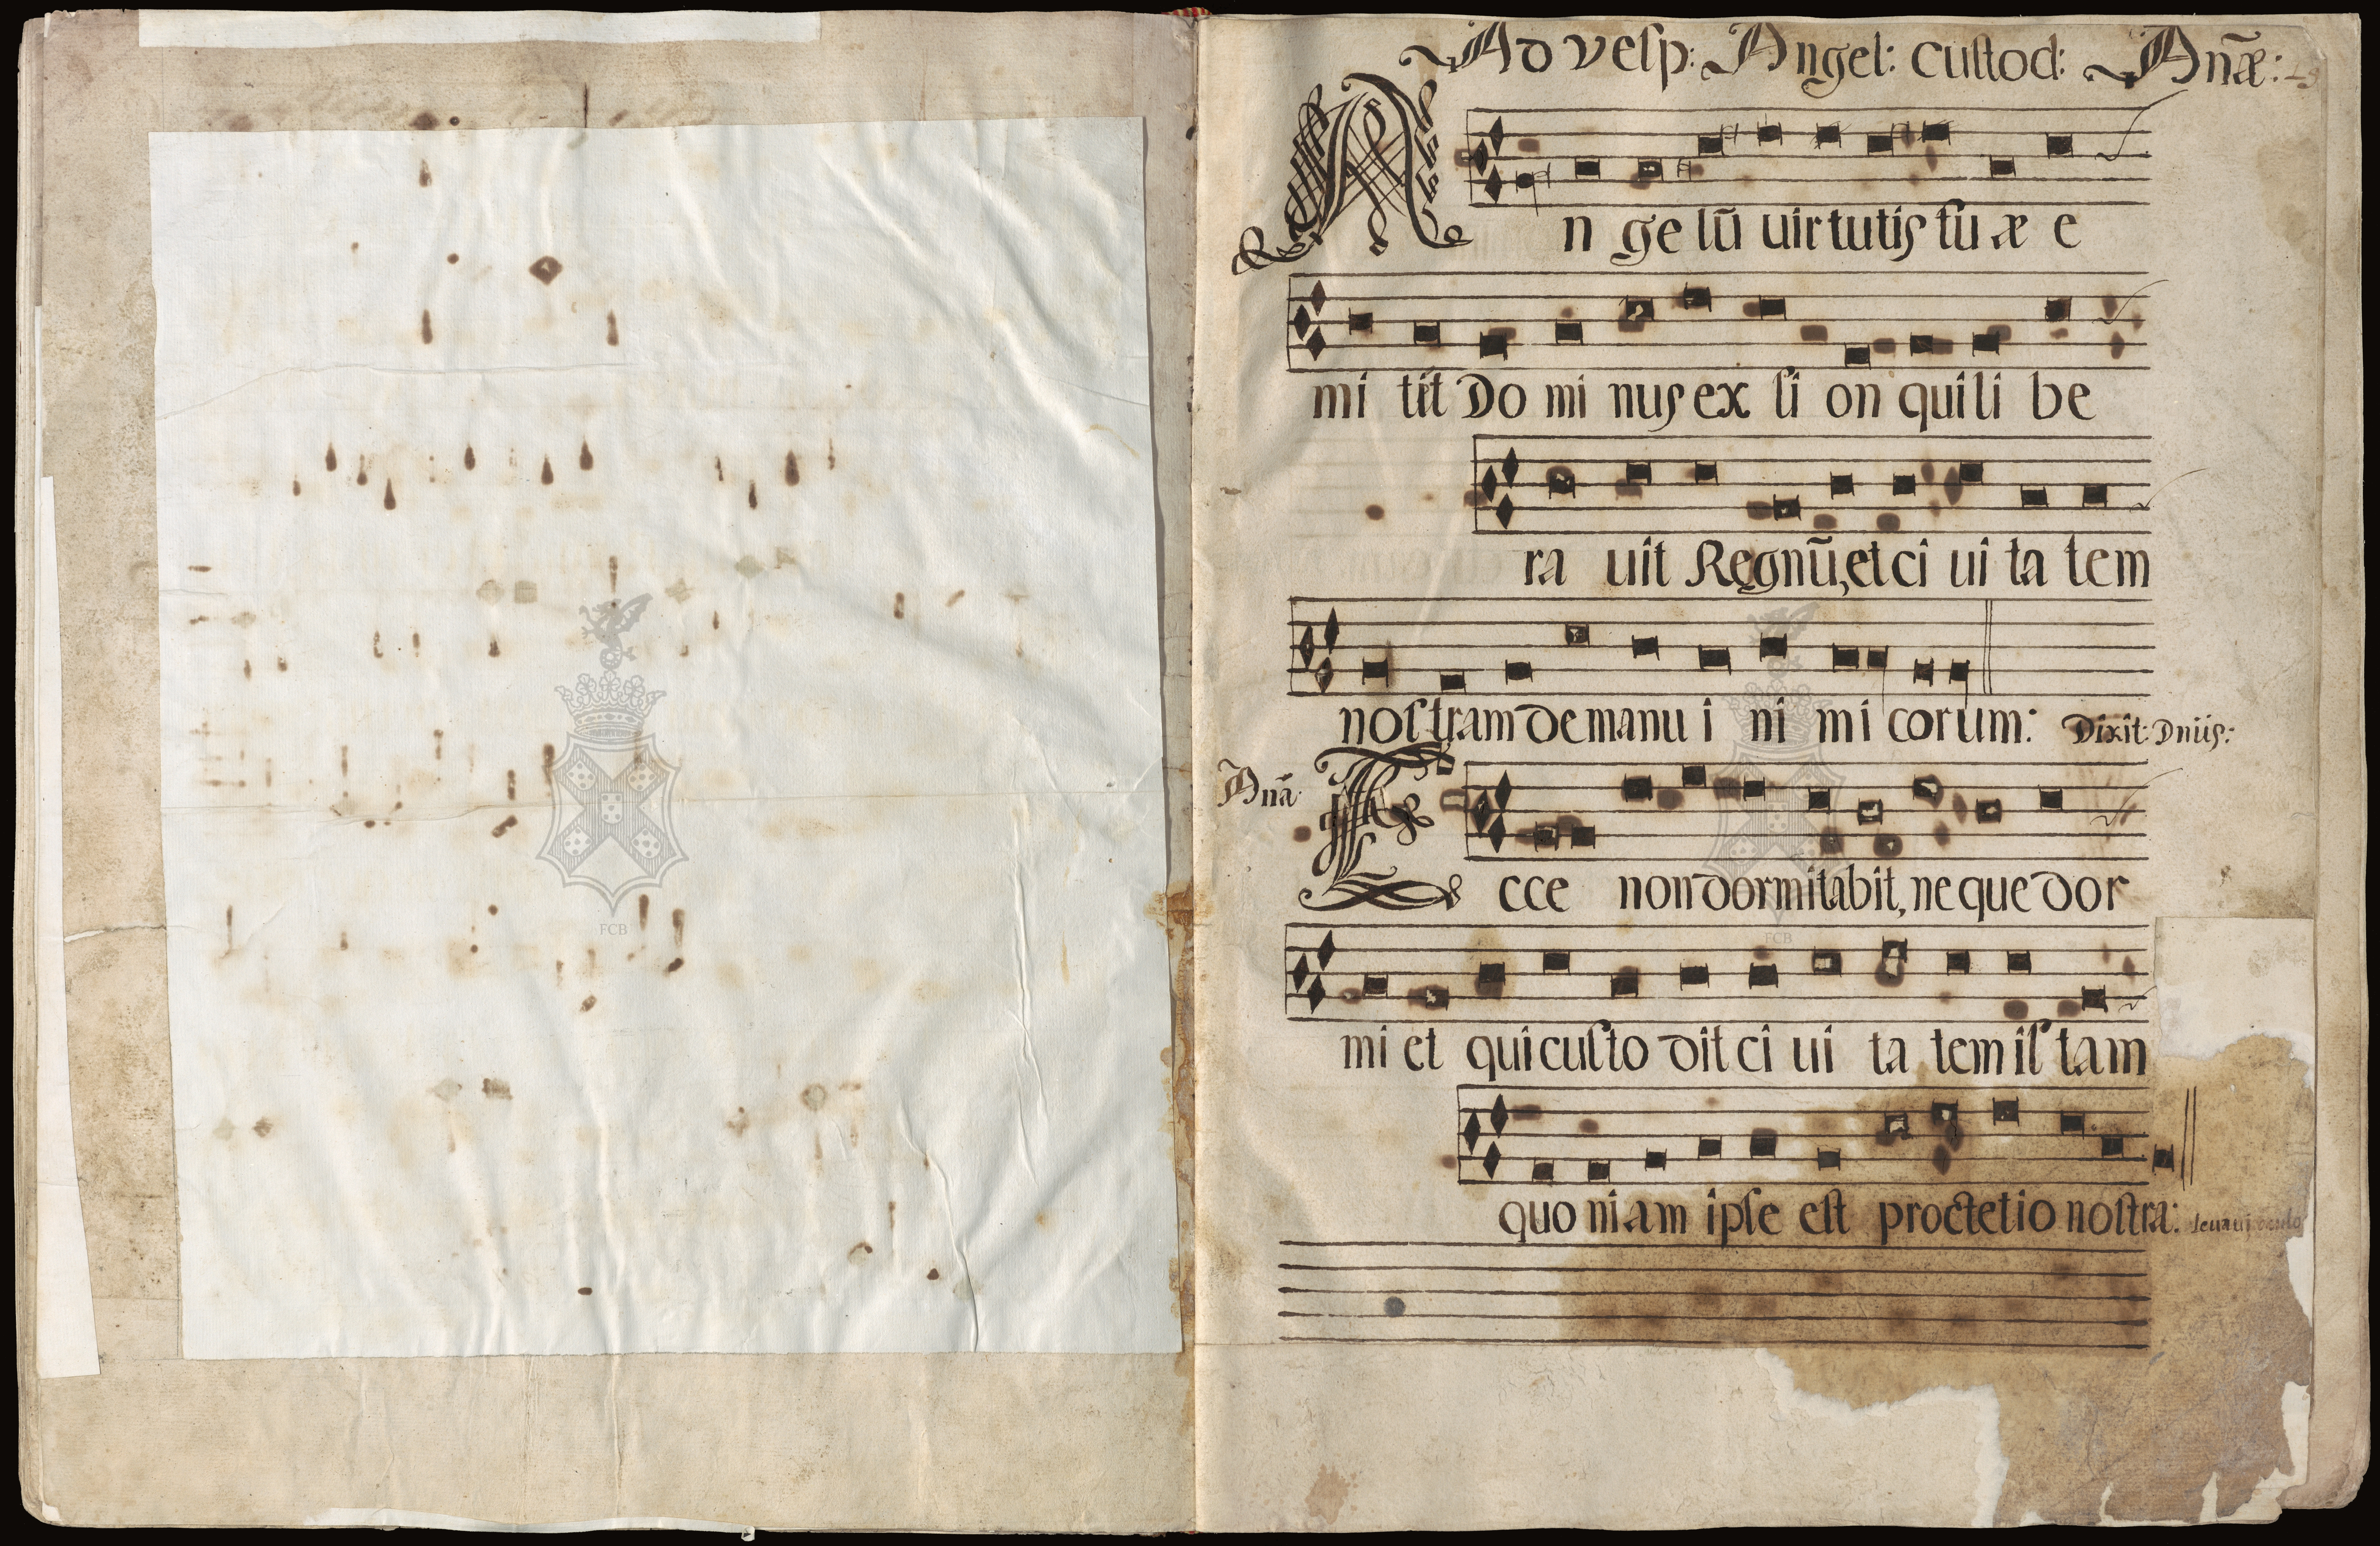 Ad vesp: Angel: Custod: Anæ:
An ge lũ uir tutis su æ e
mi tit Do mi nus ex si on qui li be
ra uit Regnũ, et ci ui ta tem
nos tram de manu i ni mi corum: Dixit: Dnũs:
Anã
Ecce non dormitabit, neque dor
mi et qui custo dit ci ui ta tem is tam
quo niam ipse est proctetio nostra: leuaui oculos
FCB
FCB